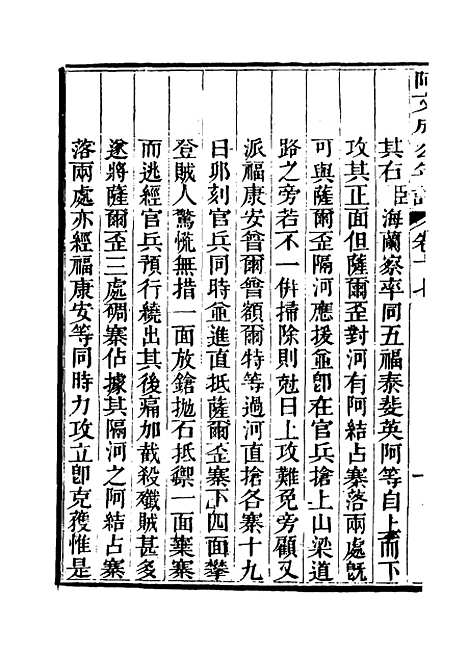 阿文成公年譜 卷十七
其右臣海蘭察率同五福泰斐英阿等自上而下
攻其正面但薩爾歪對河有阿結占寨落兩處既
可與薩爾歪隔河應援並卽在官兵搶上山梁道
路之旁若不一倂掃除則尅日上攻難免旁顧又
派福康安曾爾曾額爾特等過河直搶各寨十九
日丱刻官兵同時並進直抵薩爾歪寨下四面攀
登賊人驚慌無措一面放鎗抛石抵禦一面棄寨
而逃經官兵預行繞出其後痛加截殺殲賊甚多
遂將薩爾歪三處碉寨佔據其隔河之阿結占寨
落兩處亦經福康安等同時力攻立卽克獲惟是